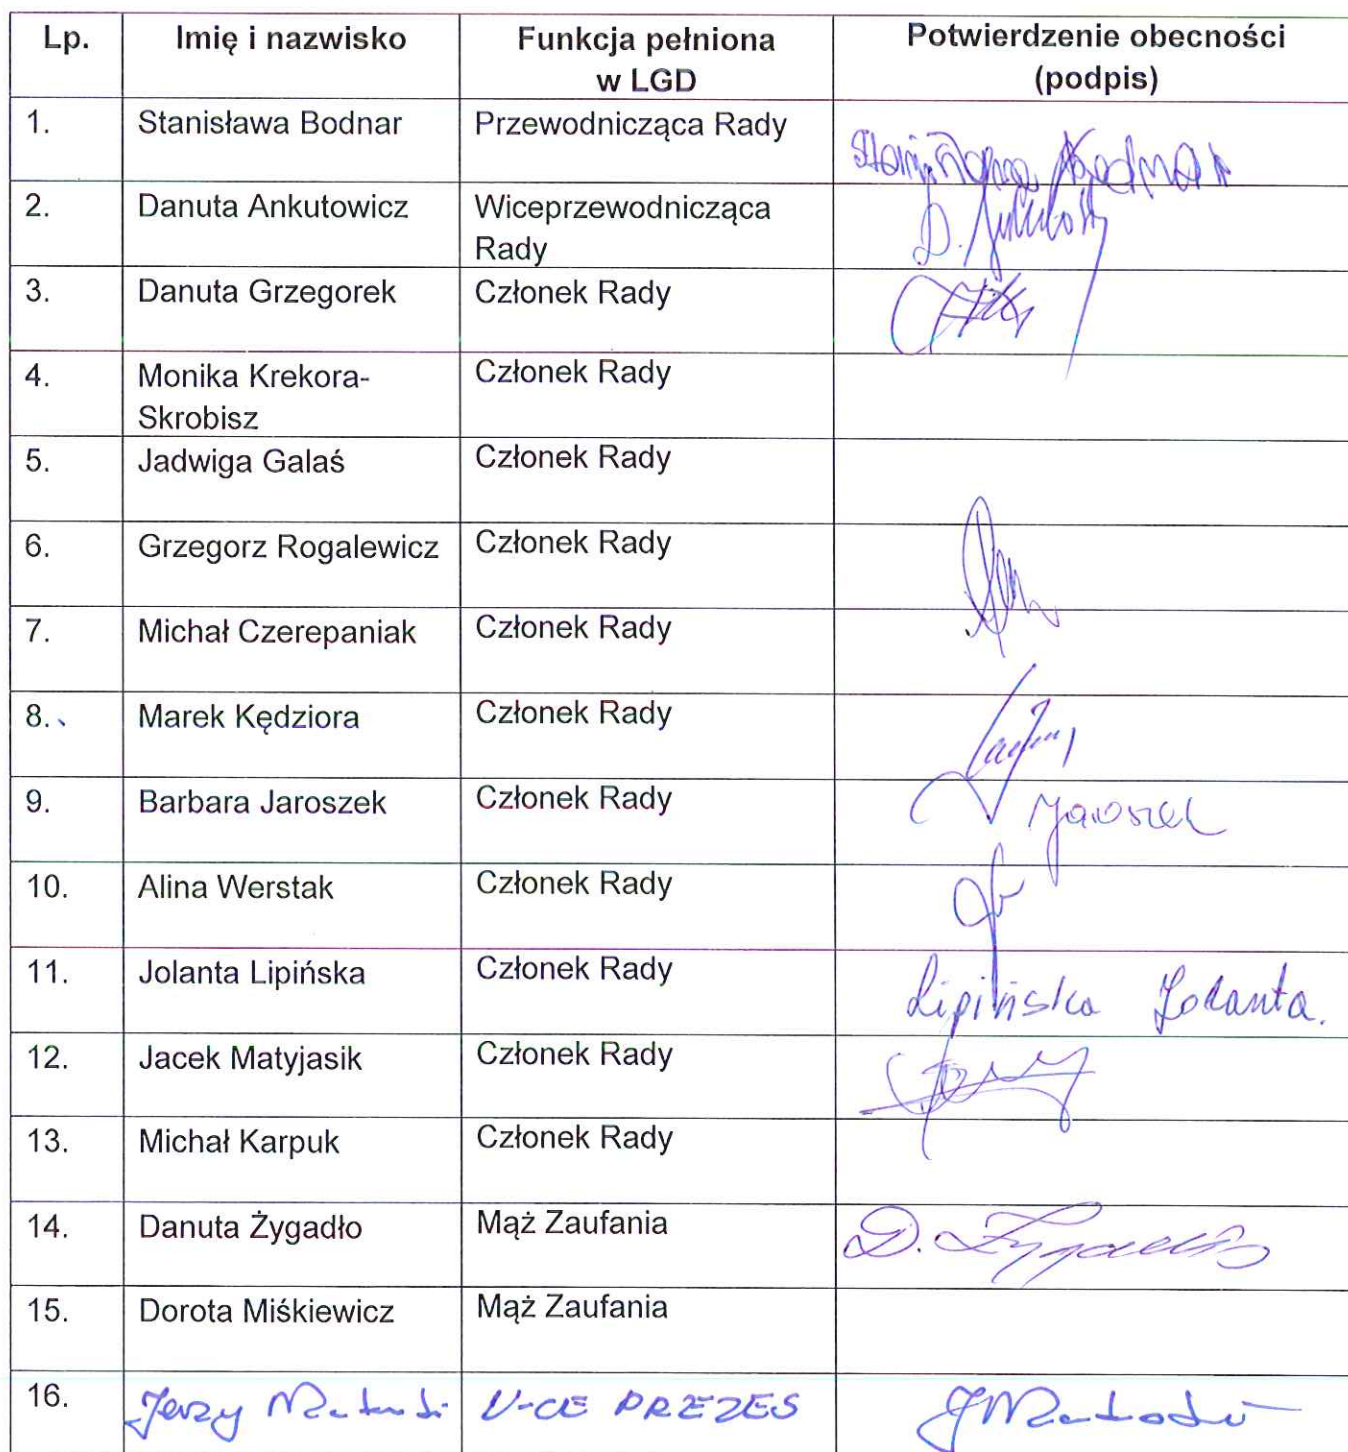 Lp. Imię i nazwisko Funkcja pełniona w LGD Potwierdzenie obecności (podpis)
1. Stanisława Bodnar Przewodnicząca Rady Stanisława Bodnar
2. Danuta Ankutowicz Wiceprzewodnicząca Rady D.
3. Danuta Grzegorek Członek Rady
4. Monika Krekora-Skrobisz Członek Rady
5. Jadwiga Galaś Członek Rady
6. Grzegorz Rogalewicz Członek Rady
7. Michał Czerepaniak Członek Rady
8. Marek Kędziora Członek Rady
9. Barbara Jaroszek Członek Rady
10. Alina Werstak Członek Rady
11. Jolanta Lipińska Członek Rady Lipińska Jolanta.
12. Jacek Matyjasik Członek Rady
13. Michał Karpuk Członek Rady
14. Danuta Żygadło Mąż Zaufania D. Żygadło
15. Dorota Miśkiewicz Mąż Zaufania
16. Jerzy V-CE PREZES